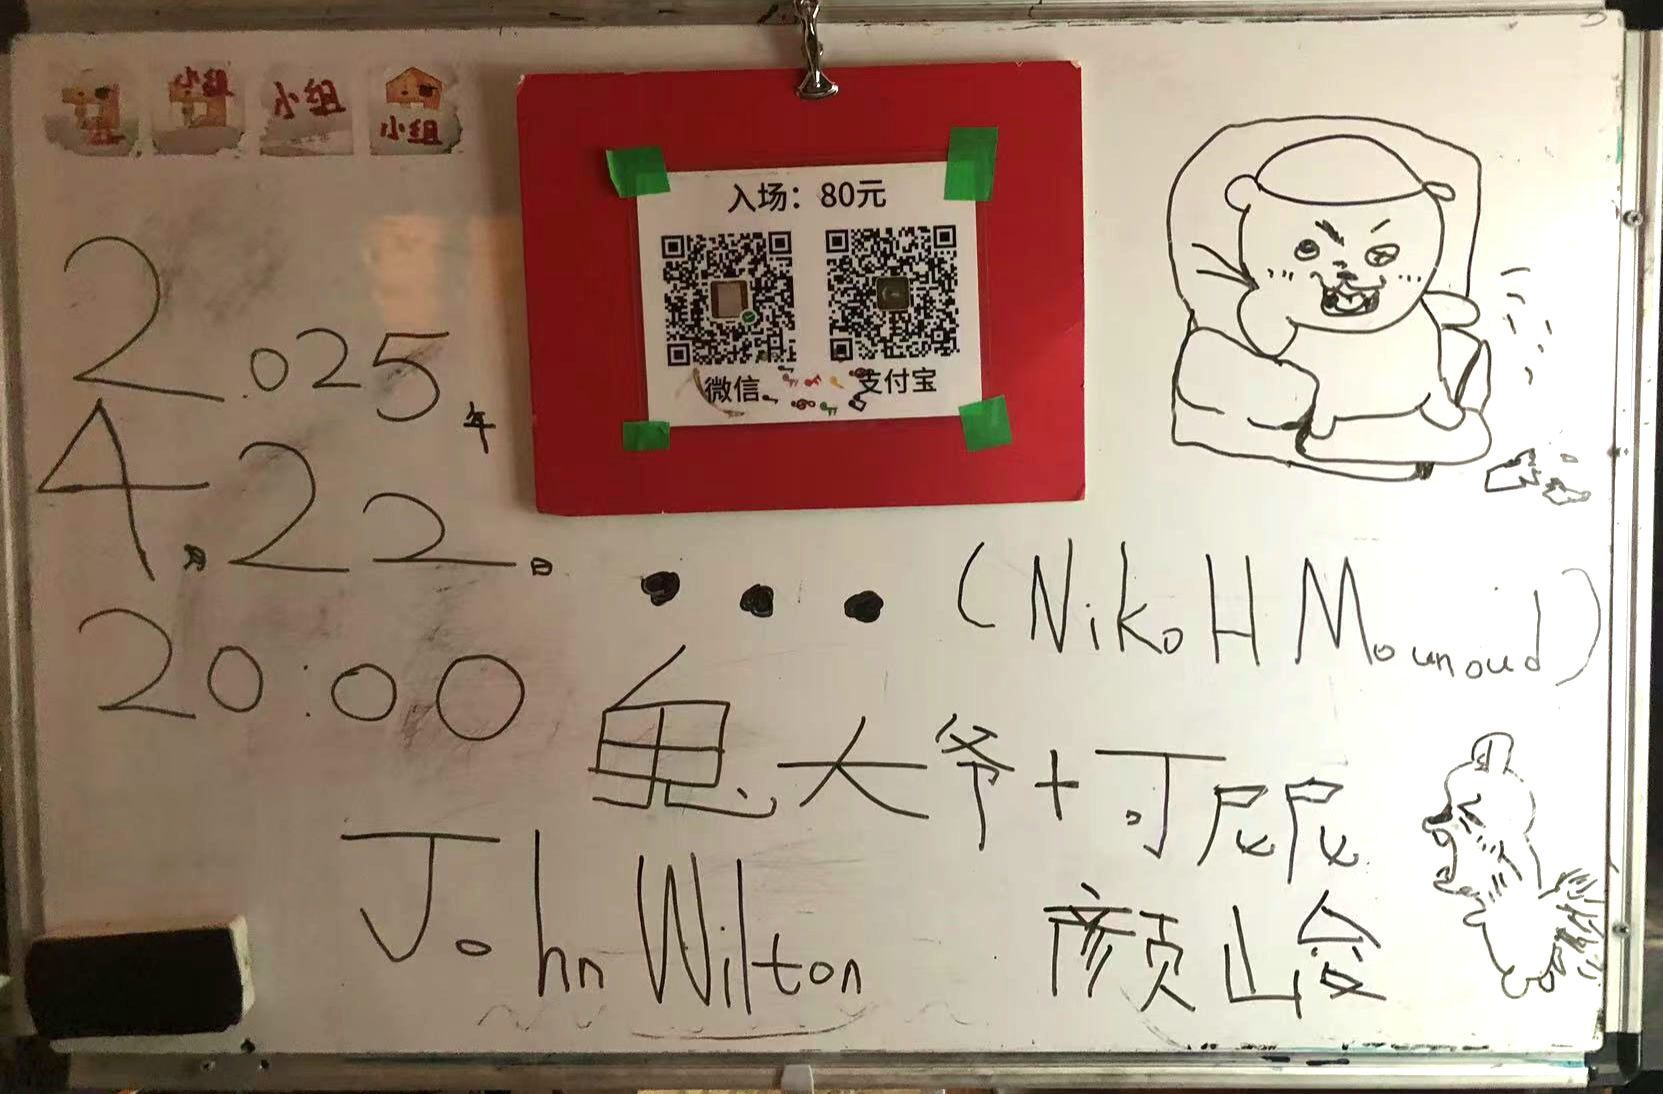 小组 小组 小组
入场：80元
微信 支付宝
2025年
4月22日
20:00
••• (Niko H Mounoud)
鬼大爷+可尼尼
John Wilton 颜峻